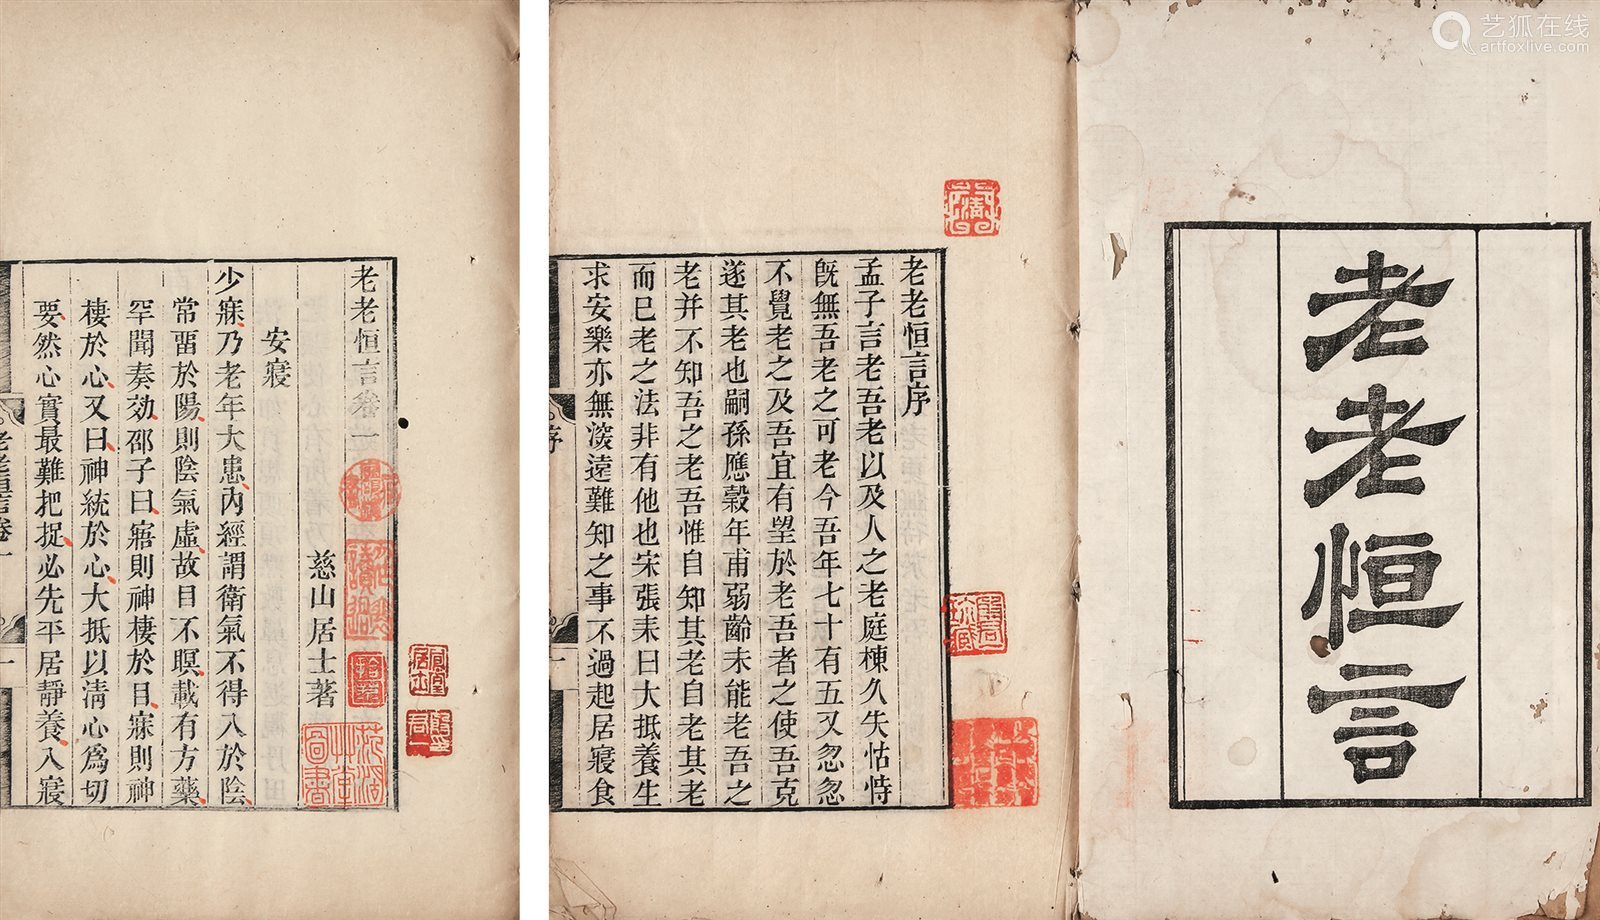 艺狐在线
artfoxlive.com
老老恒言
老老恒言序
孟子言老吾老以及人之老庭棟久失怙恃
旣無吾老之可老今吾年七十有五又忽忽
不覺老之及吾宜有望於老吾者之使吾克
遂其老也嗣孫應穀年甫弱齡未能老吾之
老并不知吾之老吾惟自知其老自老其老
而已老之法非有他也宋張耒曰大抵養生
求安樂亦無深遠難知之事不過起居寢食
序
一
老老恒言卷一
慈山居士著
安寢
少寐乃老年大患內經謂衛氣不得入於陰
常畱於陽則陰氣虛故目不瞑載有方藥
罕聞奏効邵子曰寤則神棲於目寐則神
棲於心又曰神統於心大抵以淸心爲切
要然心實最難把捉必先平居靜養入寢
老老恒言卷一
一